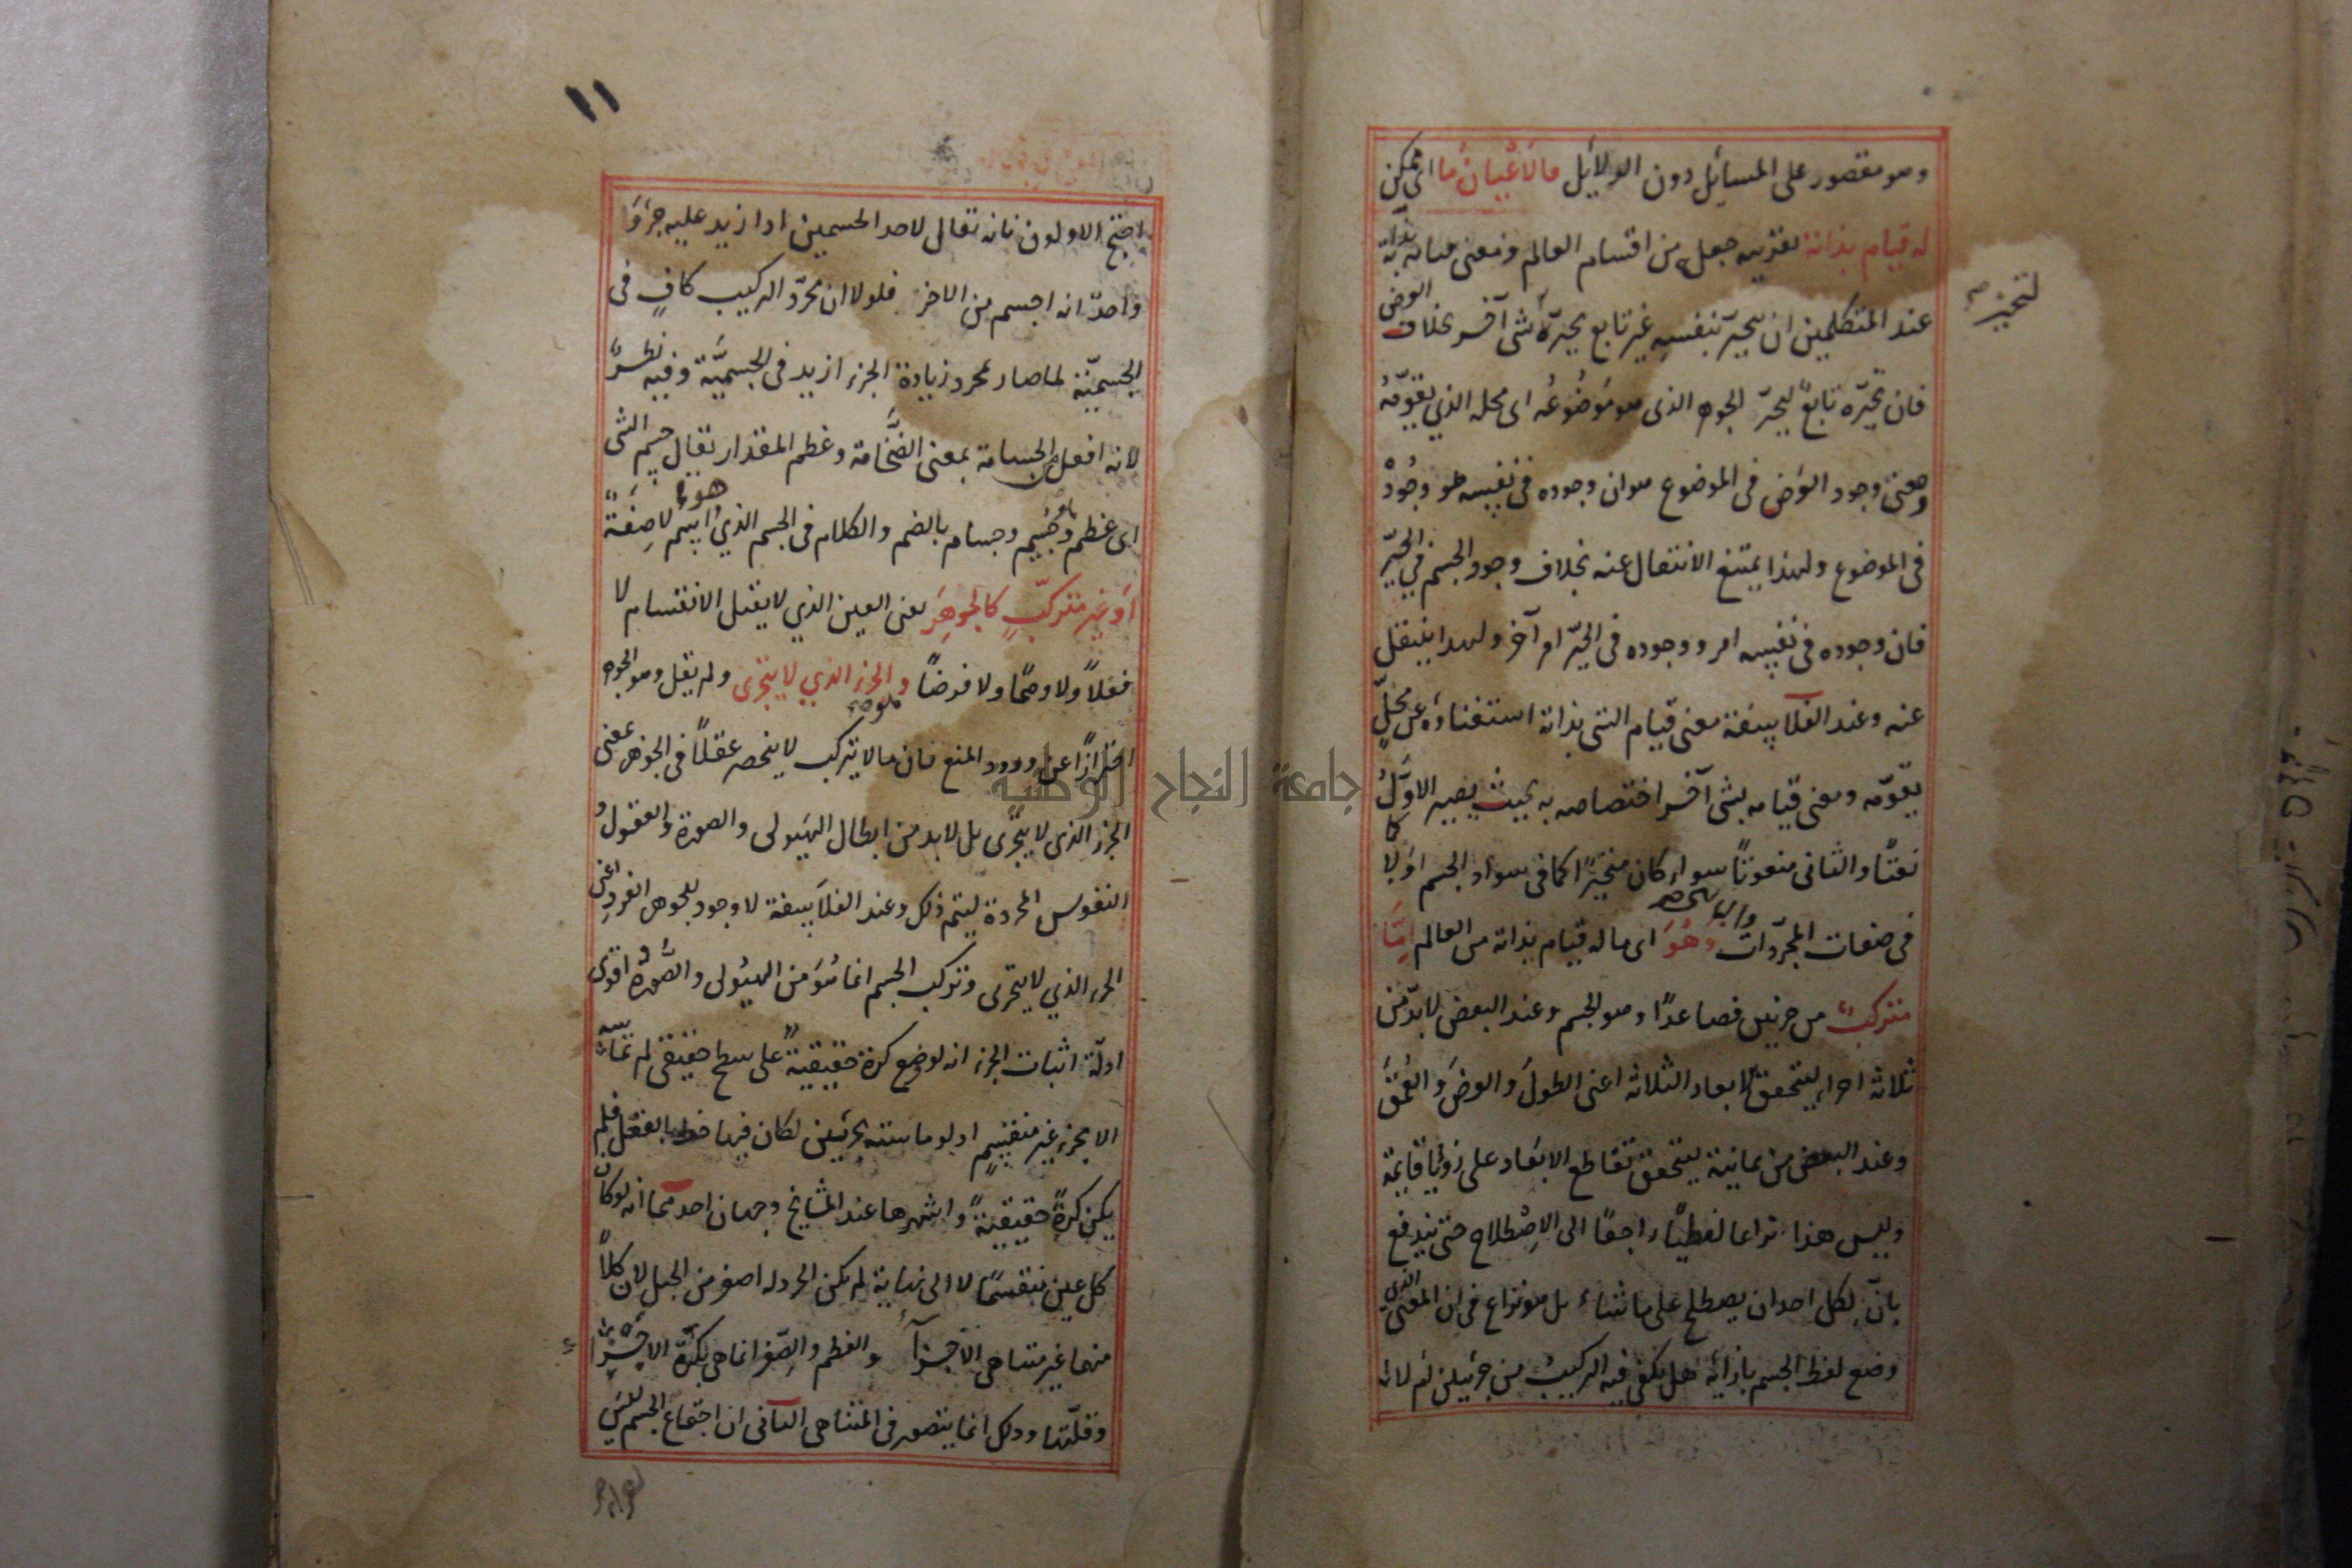 وهو مقصور على المسائل دون الدلايل فالاعيان ما اى ممكن
له قيام بذاته بقرينة جعله من اقسام العالم ومعنى قيامه بذاته
عند المتكلمين ان يتحيز بنفسه غير تابع تحيزه لتحيز شى آخر بخلاف العرض
فان تحيزه تابع لتحيز الجوهر الذى هو موضوعه اى محله الذي يقومه
ومعنى وجود العرض فى الموضوع هوان وجوده فى نفسه هو وجوده
فى الموضوع ولهذا يمتنع الانتقال عنه بخلاف وجود الجسم في الحيز
فان وجوده فى نفسه امر ووجوده فى الحيز امر آخر ولهذا ينتقل
عنه وعند الفلاسفة معنى قيام الشى بذاته استغناؤه عن محل
يقومه ومعنى قيامه بشى آخر اختصاصه به بحيث يصير الاول
نعتا والثانى منعوتا سواء كان متحيزا كما فى سواد الجسم اولا كما
فى صفات المجردات وهو اى ماله قيام بذاته من العالم اما
متركب من جزئين فصاعدا وهو الجسم وعند البعض لابد من
ثلاثة اجزاء ليتحقق الابعاد الثلاثة اعنى الطول والعرض والعمق
وعند البعض من ثمانية ليتحقق تقاطع الابعاد على زوايا قايمة
وليس هذا نزاعا لفظيا راجعا الى الاصطلاح حتى يندفع
بان لكل احد ان يصطلح على ما شاء بل هو نزاع فى ان المعنى الذي
وضع لفظ الجسم بازائه هل يكفى فيه التركيب من جزئين ام لا
لتحيز صح
١١
احتج الاولون بانه يقال لاحد الجسمين اذا زيد عليه جزؤ
واحد انه اجسم من الاخر فلولا ان مجرد التركيب كاف فى
الجسمية لما صار بمجرد زيادة الجزء ازيد فى الجسمية وفيه نظر
لانه افعل من الجسامة بمعنى الضخامة وعظم المقدار يقال جسم الشى
اى عظم فهو جسيم وجسام بالضم والكلام فى الجسم الذي هو اسم لا صفة
او غير متركب كالجوهر يعنى العين الذي لا يقبل الانقسام لا
فعلا ولا وهما ولا فرضا والجزء الذي لا يتجزى ولم يقل وهو الجوهر
احترازا عن ورود المنع فان ما لا يتركب لا ينحصر عقلا فى الجوهر بمعنى
الجزء الذى لا يتجزى بل لابد من ابطال الهيولى والصورة والعقول و
النفوس المجردة ليتم ذلك وعند الفلاسفة لا وجود للجوهر الفرد اعنى
الجزء الذي لا يتجزى وتركب الجسم انما هو من الهيولى والصورة واقوى
ادلة اثبات الجزء انه لو وضع كرة حقيقية على سطح حقيقى لم تماسه
الا بجزء غير منقسم اذ لو ماسته بجزئين لكان فيها خط بالفعل فلم
يكن كرة حقيقية واشهرها عند المشايخ وجهان احدهما انه لو كان
كل عين منقسما لا الى نهاية لم يكن الخردلة اصغر من الجبل لان كلا
منهما غير متناهى الاجزاء والعظم والصغر انما هى بكثرة الاجزاء
وقلتها وذلك انما يتصور فى المتناهى الثانى ان اجتماع الجسم ليس
جامعة النجاح الوطنية